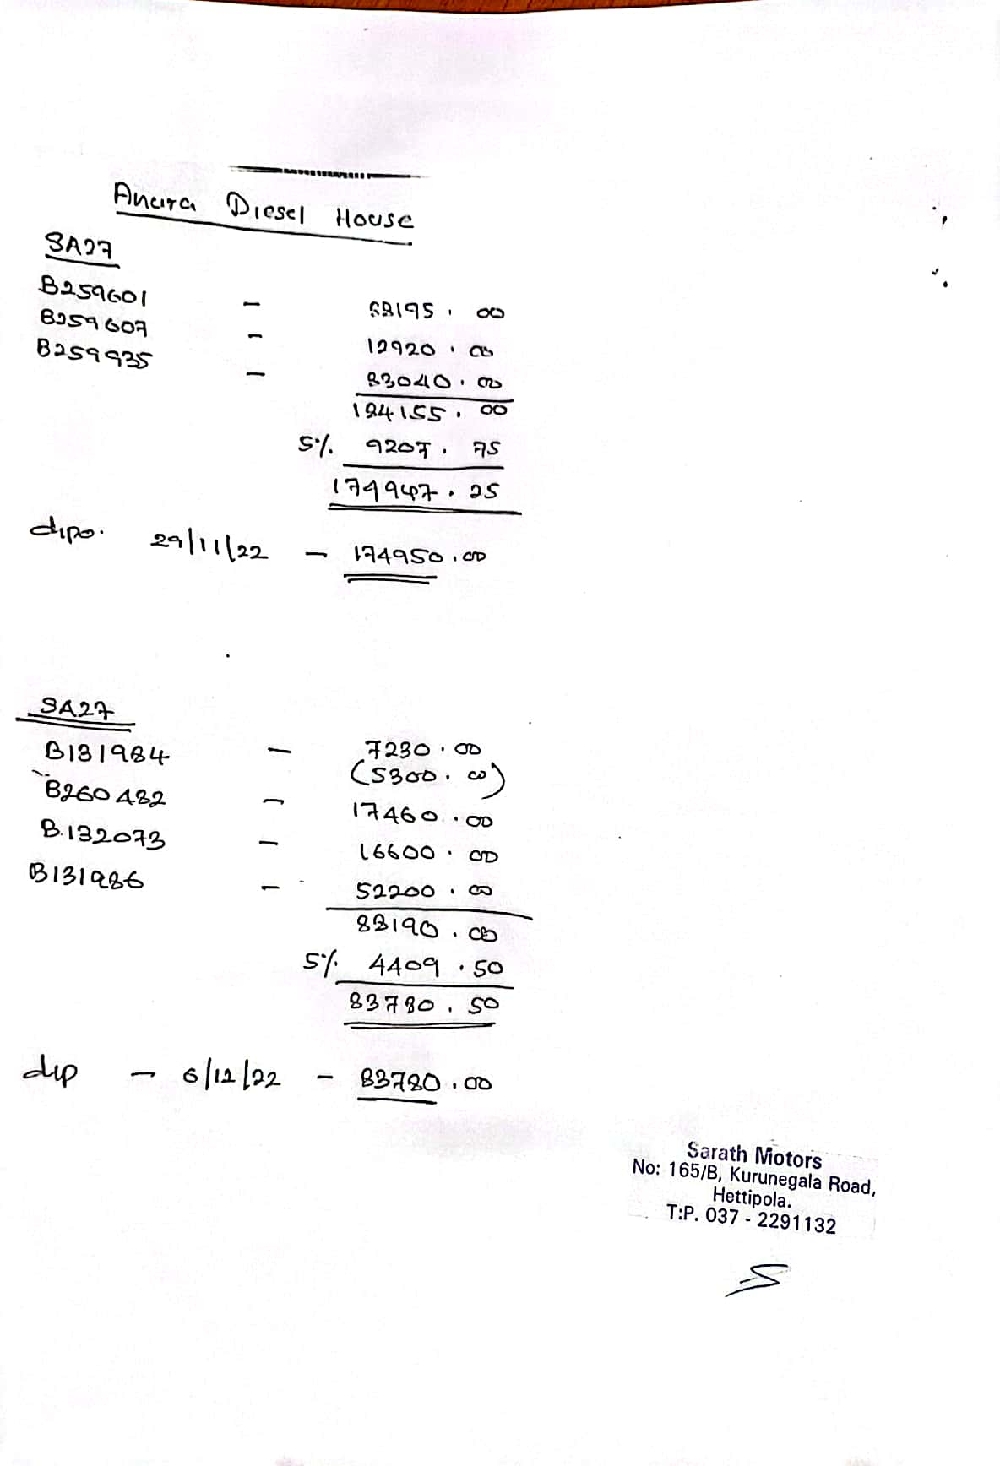 Anura Diesel House
SA27
B259601 - 88195.00
B259607 - 12920.00
B259935 - 83040.00
184155.00
5% 9207.75
174947.25
dipo. 29/11/22 - 174950.00
SA27
B131984 - 7230.00
(5300.00)
B260482 - 17460.00
B.132073 - 16600.00
B131986 - 52200.00
88190.00
5% 4409.50
83780.50
dip - 6/12/22 - 83780.00
Sarath Motors
No: 165/B, Kurunegala Road,
Hettipola.
T:P. 037 - 2291132